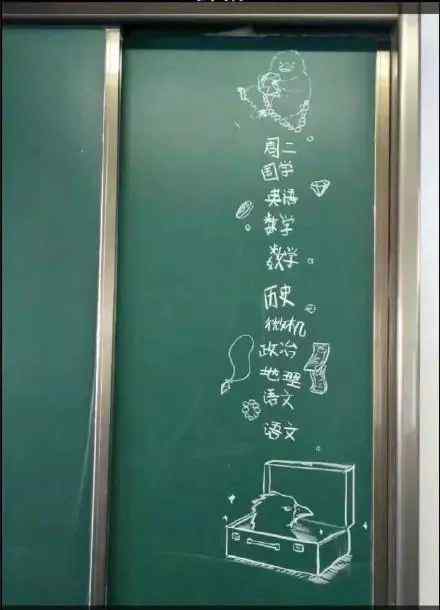 周二
国学
英语
数学
数学
历史
微机
政治
地理
语文
语文